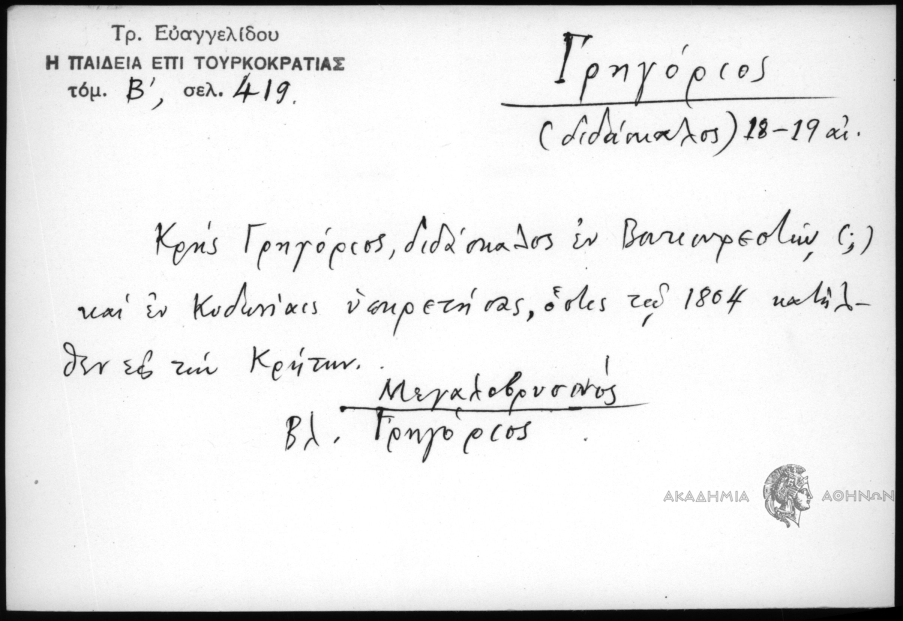 Τρ. Εὐαγγελίδου
Η ΠΑΙΔΕΙΑ ΕΠΙ ΤΟΥΡΚΟΚΡΑΤΙΑΣ
τόμ. Β', σελ. 419.
Γρηγόριος
(διδάσκαλος) 18-19 αἰ.
Κρής Γρηγόριος, διδάσκαλος ἐν Βουκουρεστίῳ (;)
καί ἐν Κυδωνίαις ὑπηρετήσας, ὅστις τῷ 1804 κατῆλ-
θεν εἰς τήν Κρήτην.
Μεγαλοβρυσινός
Βλ. Γρηγόριος
ΑΚΑΔΗΜΙΑ ΑΘΗΝΩΝ